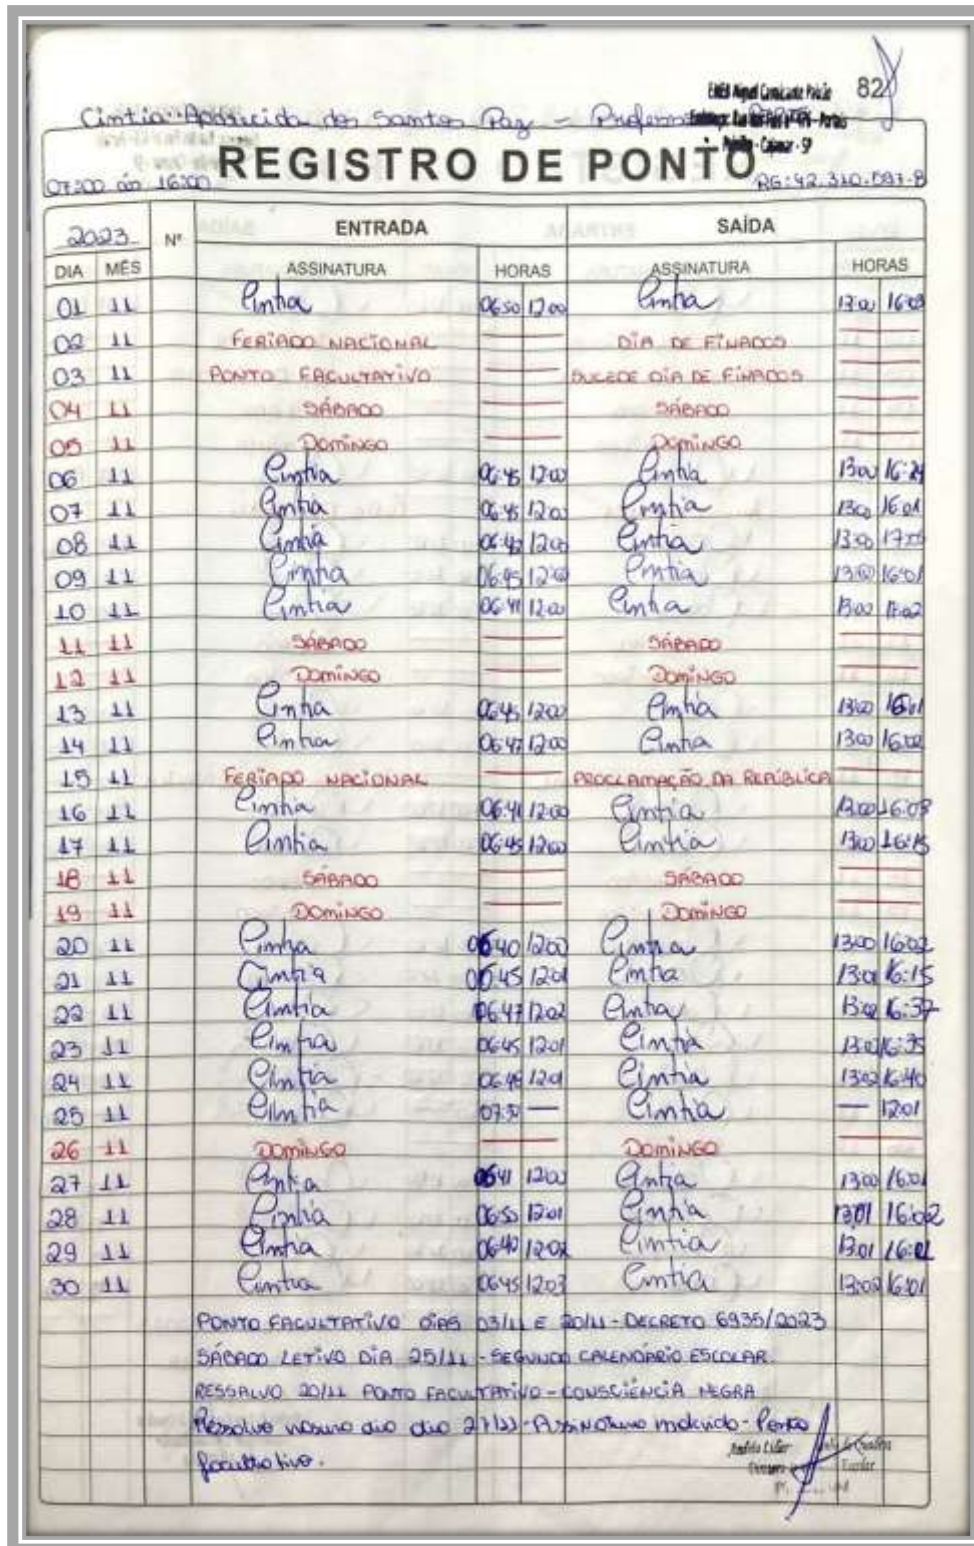 82
Cintia Aparecida dos Santos Paz -
REGISTRO DE PONTO
07:00 às 16:00
2023 Nº ENTRADA SAÍDA
DIA MÊS ASSINATURA HORAS ASSINATURA HORAS
01 11 Cintia 06:50 12:00 Cintia 13:00 16:03
02 11 FERIADO NACIONAL DIA DE FINADOS
03 11 PONTO FACULTATIVO SUCEDE DIA DE FINADOS
04 11 SÁBADO SÁBADO
05 11 DOMINGO DOMINGO
06 11 Cintia 06:45 12:00 Cintia 13:00
07 11 Cintia 06:45 12:00 Cintia 13:00 16:01
08 11 Cintia 06:42 12:00 Cintia 13:00
09 11 Cintia 06:45 12:00 Cintia 13:00 16:01
10 11 Cintia 06:41 12:00 Cintia 13:00
11 11 SÁBADO SÁBADO
12 11 DOMINGO DOMINGO
13 11 Cintia 06:45 12:00 Cintia 13:00 16:01
14 11 Cintia 06:47 12:00 Cintia 13:00 16:02
15 11 FERIADO NACIONAL PROCLAMAÇÃO DA REPÚBLICA
16 11 Cintia 06:41 12:00 Cintia 13:00 16:03
17 11 Cintia 06:45 12:00 Cintia 13:00 16:15
18 11 SÁBADO SÁBADO
19 11 DOMINGO DOMINGO
20 11 Cintia 06:40 12:00 Cintia 13:00 16:02
21 11 Cintia 06:45 12:01 Cintia 13:01 16:15
22 11 Cintia 06:47 12:02 Cintia 13:02 16:37
23 11 Cintia 06:45 12:01 Cintia 13:02 16:35
24 11 Cintia 06:48 12:01 Cintia 13:02 16:40
25 11 Cintia 07:30 — Cintia — 12:01
26 11 DOMINGO DOMINGO
27 11 Cintia 06:41 12:00 Cintia 13:00 16:01
28 11 Cintia 06:50 12:01 Cintia 13:01 16:02
29 11 Cintia 06:40 12:02 Cintia 13:01
30 11 Cintia 06:45 12:03 Cintia 13:02 16:01
PONTO FACULTATIVO DIAS 03/11 E 20/11 - DECRETO 6935/2023
SÁBADO LETIVO DIA 25/11 - SEGUNDO CALENDÁRIO ESCOLAR.
RESSALVO 20/11 PONTO FACULTATIVO - CONSCIÊNCIA NEGRA
Ressalvo dia - Assinatura indevida - Ponto
facultativo.